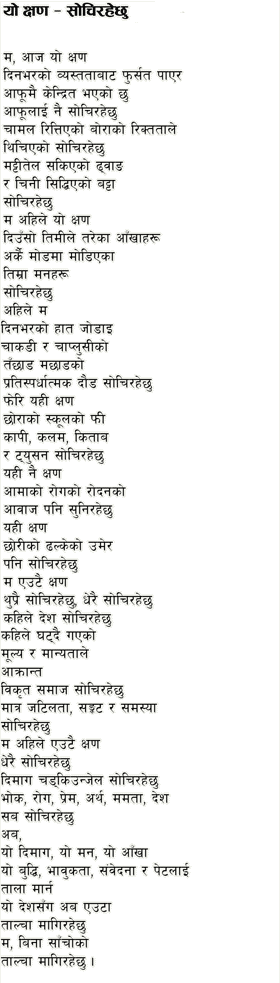 यो क्षण – सोचिरहेछु
म, आज यो क्षण
दिनभरको व्यस्तताबाट फुर्सत पाएर
आफूमै केन्द्रित भएको छु
आफूलाई नै सोचिरहेछु
चामल रित्तिएको बोराको रिक्तताले
थिचिएको सोचिरहेछु
मट्टीतेल सकिएको ढ्वाङ
र चिनी सिद्धिएको बट्टा
सोचिरहेछु
म अहिले यो क्षण
दिउँसो तिमीले तरेका आँखाहरू
अर्कै मोडमा मोडिएका
तिम्रा मनहरू
सोचिरहेछु
अहिले म
दिनभरको हात जोडाइ
चाकडी र चाप्लुसीको
तँछाड मछाडको
प्रतिस्पर्धात्मक दौड सोचिरहेछु
फेरि यही क्षण
छोराको स्कूलको फी
कापी, कलम, किताब
र ट्युसन सोचिरहेछु
यही नै क्षण
आमाको रोगको रोदनको
आवाज पनि सुनिरहेछु
यही क्षण
छोरीको ढल्केको उमेर
पनि सोचिरहेछु
म एउटै क्षण
थुप्रै सोचिरहेछु, धेरै सोचिरहेछु
कहिले देश सोचिरहेछु
कहिले घट्दै गएको
मूल्य र मान्यताले
आक्रान्त
विकृत समाज सोचिरहेछु
मात्र जटिलता, सङ्कट र समस्या
सोचिरहेछु
म अहिले एउटै क्षण
धेरै सोचिरहेछु
दिमाग चड्किउन्जेल सोचिरहेछु
भोक, रोग, प्रेम, अर्थ, ममता, देश
सब सोचिरहेछु
अब,
यो दिमाग, यो मन, यो आँखा
यो बुद्धि, भावुकता, संवेदना र पेटलाई
ताला मार्न
यो देशसँग अब एउटा
ताल्चा मागिरहेछु
म, बिना साँचोको
ताल्चा मागिरहेछु ।